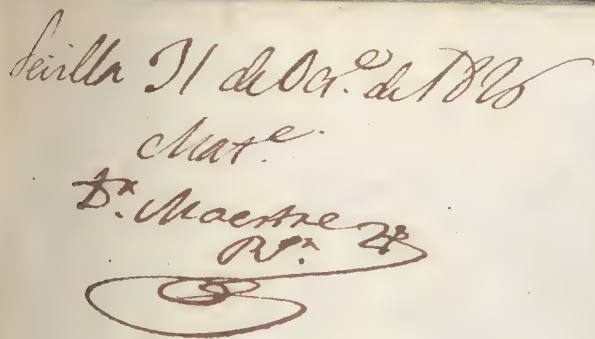 Sevilla 31 de Oct.e de 1826
Mat.e
D.r Maestre